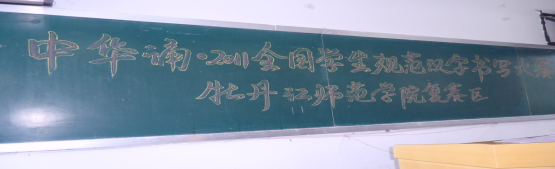 中华诵·2011全国学生规范汉字书写大赛
牡丹江师范学院复赛区